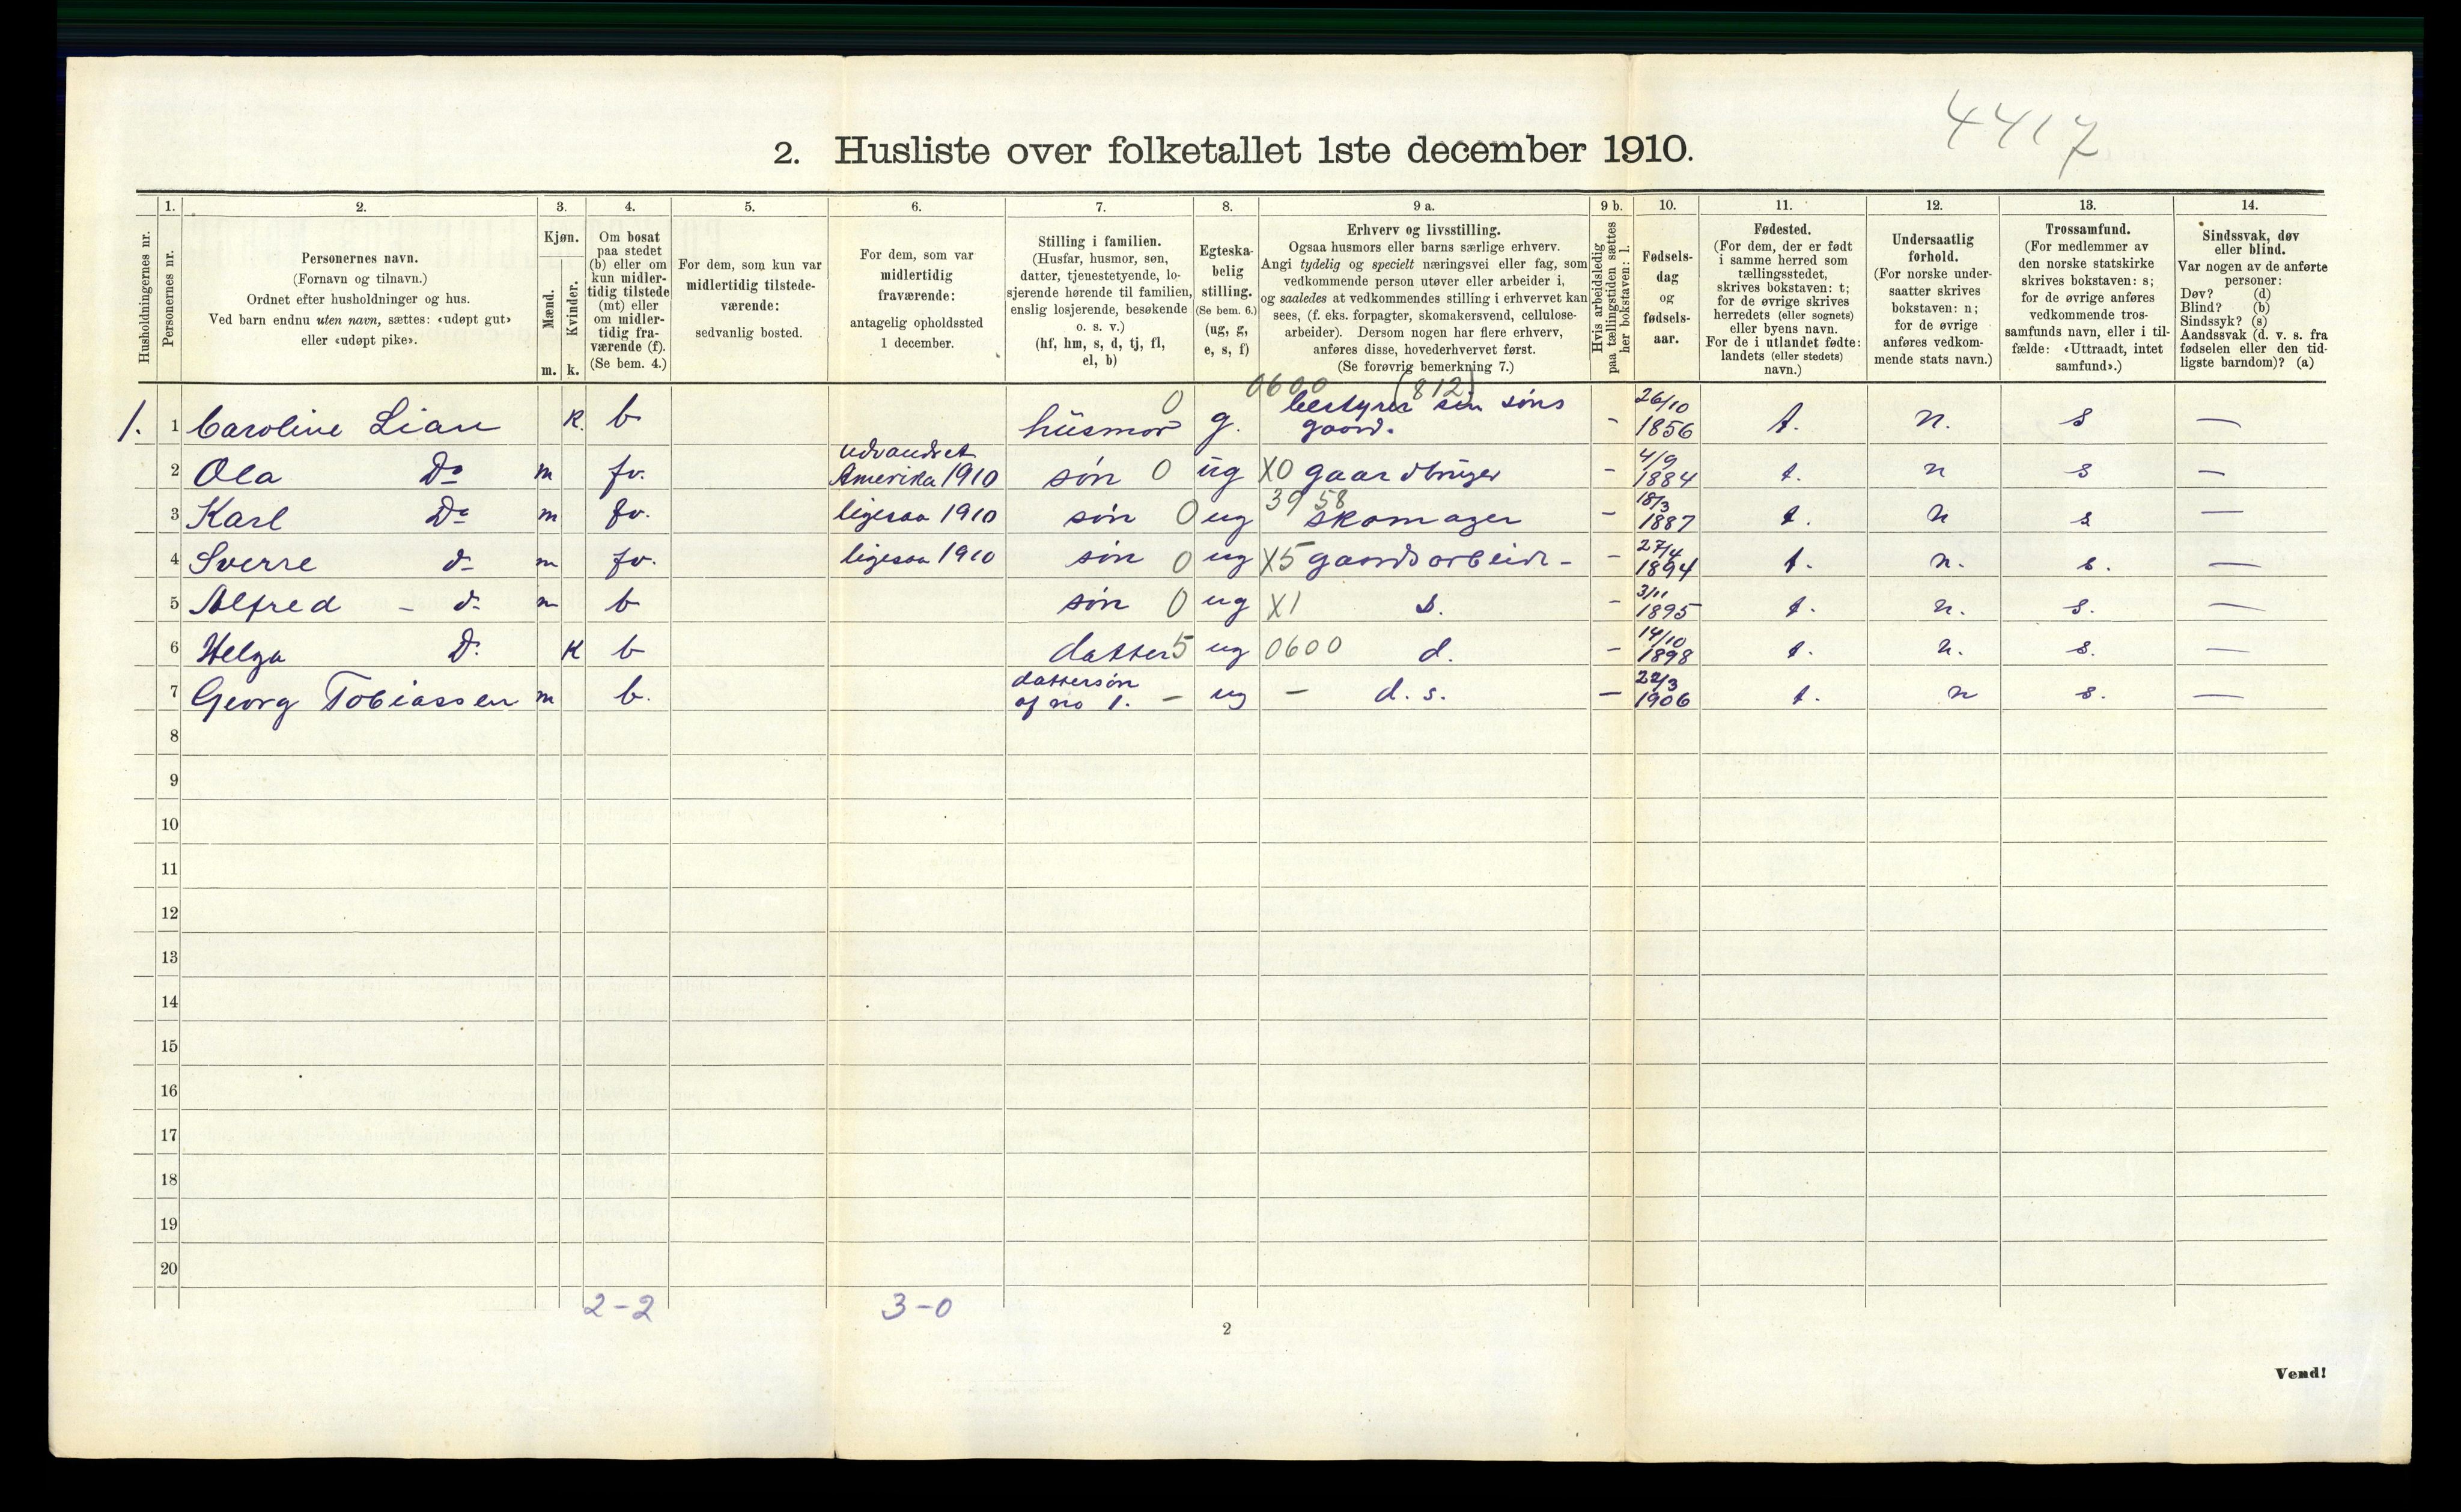 4417
2. Husliste over folketallet 1ste december 1910.
Husholdningernes nr.
1.
Personernes nr.
2.
Personernes navn.
(Fornavn og tilnavn.)
Ordnet efter husholdninger og hus.
Ved barn endnu uten navn, sættes: «udøpt gut»
eller «udøpt pike».
3.
Kjøn.
Mænd.
Kvinder.
m. k.
4.
Om bosat
paa stedet
(b) eller om
kun midler-
tidig tilstede
(mt) eller
om midler-
tidig fra-
værende (f).
(Se bem. 4.)
5.
For dem, som kun var
midlertidig tilstede-
værende:
sedvanlig bosted.
6.
For dem, som var
midlertidig
fraværende:
antagelig opholdssted
1 december.
7.
Stilling i familien.
(Husfar, husmor, søn,
datter, tjenestetyende, lo-
sjerende hørende til familien,
enslig losjerende, besøkende
o. s. v.)
(hf, hm, s, d, tj, fl,
el, b)
8.
Egteska-
belig
stilling.
(Se bem. 6.)
(ug, g,
e, s, f)
9 a.
Erhverv og livsstilling.
Ogsaa husmors eller barns særlige erhverv.
Angi tydelig og specielt næringsvei eller fag, som
vedkommende person utøver eller arbeider i,
og saaledes at vedkommendes stilling i erhvervet kan
sees, (f. eks. forpagter, skomakersvend, cellulose-
arbeider). Dersom nogen har flere erhverv,
anføres disse, hovederhvervet først.
(Se forøvrig bemerkning 7.)
9 b.
Hvis arbeidsledig
paa tællingstiden sættes
her bokstaven: l.
10.
Fødsels-
dag
og
fødsels-
aar.
11.
Fødested.
(For dem, der er født
i samme herred som
tællingsstedet,
skrives bokstaven: t;
for de øvrige skrives
herredets (eller sognets)
eller byens navn.
For de i utlandet fødte:
landets (eller stedets)
navn.)
12.
Undersaatlig
forhold.
(For norske under-
saatter skrives
bokstaven: n;
for de øvrige
anføres vedkom-
mende stats navn.)
13.
Trossamfund.
(For medlemmer av
den norske statskirke
skrives bokstaven: s;
for de øvrige anføres
vedkommende tros-
samfunds navn, eller i til-
fælde: «Uttraadt, intet
samfund».)
14.
Sindssvak, døv
eller blind.
Var nogen av de anførte
personer:
Døv? (d)
Blind? (b)
Sindssyk? (s)
Aandssvak (d. v. s. fra
fødselen eller den tid-
ligste barndom)? (a)
0600 (812)
1. 1 Caroline Lian k. b husmor 0 g. bestyrer sin søns gaard. - 26/10 1856 t. n. s —
2 Ola Do m fv. udvandret Amerika 1910 søn 0 ug X0 gaardbruger - 4/9 1884 t. n s —
3 Karl Do m fv. ligesaa 1910 søn 0 ug 3958 skomager - 18/3 1887 t. n s —
4 Sverre do m fv. ligesaa 1910 søn 0 ug X5 gaardsarbeide - - 27/4 1894 t. n. s. —
5 Alfred - do m b søn 0 ug X1 d. - 3/11 1895 t. n. s. —
6 Helga D. K b datter 5 ug 0600 d. - 14/10 1898 t. n. s. —
7 Georg Tobiassen m b. dattersøn af no 1. - ug - d. s. - 22/3 1906 t. n s. —
8
9
10
11
12
13
14
15
16
17
18
19
20
2-2 3-0
2
Vend!